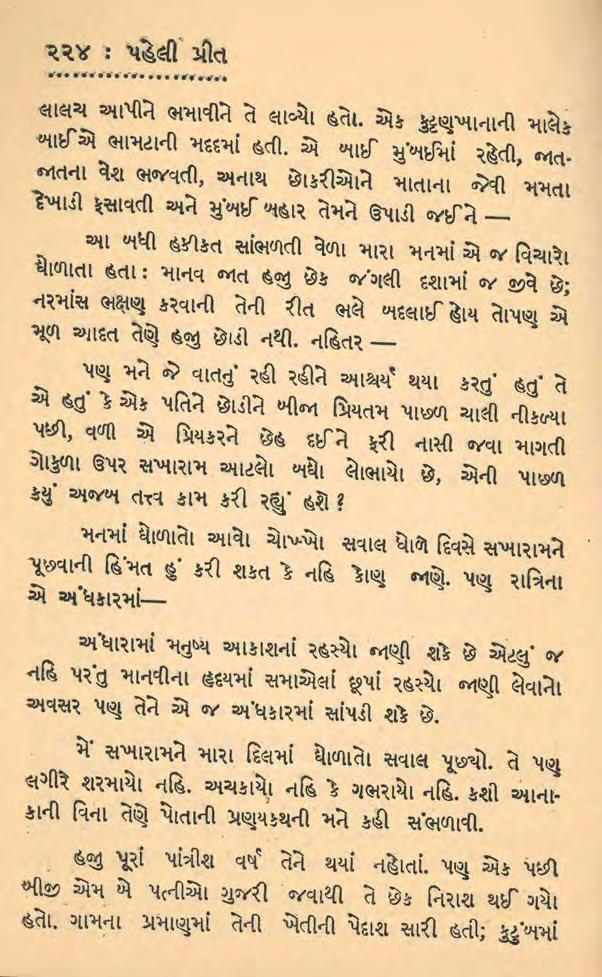 ૨૨૪ : પહેલી પ્રીત
લાલચ આપીને ભમાવીને તે લાવ્યો હતો. એક કુટ્ટણખાનાની માલેક
બાઈ એ ભામટાની મદદમાં હતી. એ બાઈ મુંબઈમાં રહેતી, જાત-
જાતના વેશ ભજવતી, અનાથ છોકરીઓને માતાના જેવી મમતા
દેખાડી ફસાવતી અને મુંબઈ બહાર તેમને ઉપાડી જઈને —
આ બધી હકીકત સાંભળતી વેળા મારા મનમાં એ જ વિચારો
ઘોળાતા હતા : માનવ જાત હજુ છેક જંગલી દશામાં જ જીવે છે;
નરમાંસ ભક્ષણ કરવાની તેની રીત ભલે બદલાઈ હોય તોપણ એ
મૂળ આદત તેણે હજુ છોડી નથી. નહિતર —
પણ મને જે વાતનું રહી રહીને આશ્ચર્ય થયા કરતું હતું તે
એ હતું કે એક પતિને છોડીને બીજા પ્રિયતમ પાછળ ચાલી નીકળ્યા
પછી, વળી એ પ્રિયકરને છેહ દઈને ફરી નાસી જવા માગતી
ગોકુળા ઉપર સખારામ આટલો બધો લોભાયો છે, એની પાછળ
કયું અજબ તત્ત્વ કામ કરી રહ્યું હશે ?
મનમાં ઘોળાતો આવો ચોખ્ખો સવાલ ધોળે દિવસે સખારામને
પૂછવાની હિંમત હું કરી શકત કે નહિ કોણ જાણે. પણ રાત્રિના
એ અંધકારમાં—
અંધારામાં મનુષ્ય આકાશનાં રહસ્યો જાણી શકે છે એટલું જ
નહિ પરંતુ માનવીના હૃદયમાં સમાએલાં છૂપાં રહસ્યો જાણી લેવાનો
અવસર પણ તેને એ જ અંધકારમાં સાંપડી શકે છે.
મેં સખારામને મારા દિલમાં ઘોળાતો સવાલ પૂછ્યો. તે પણ
લગીરે શરમાયો નહિ. અચકાયો નહિ કે ગભરાયો નહિ. કશી આના-
કાની વિના તેણે પોતાની પ્રણયકથની મને કહી સંભળાવી.
હજી પૂરાં પાંત્રીશ વર્ષ તેને થયાં નહોતાં. પણ એક પછી
બીજી એમ બે પત્નીઓ ગુજરી જવાથી તે છેક નિરાશ થઈ ગયો
હતો. ગામના પ્રમાણમાં તેની ખેતીની પેદાશ સારી હતી; કુટુંબમાં